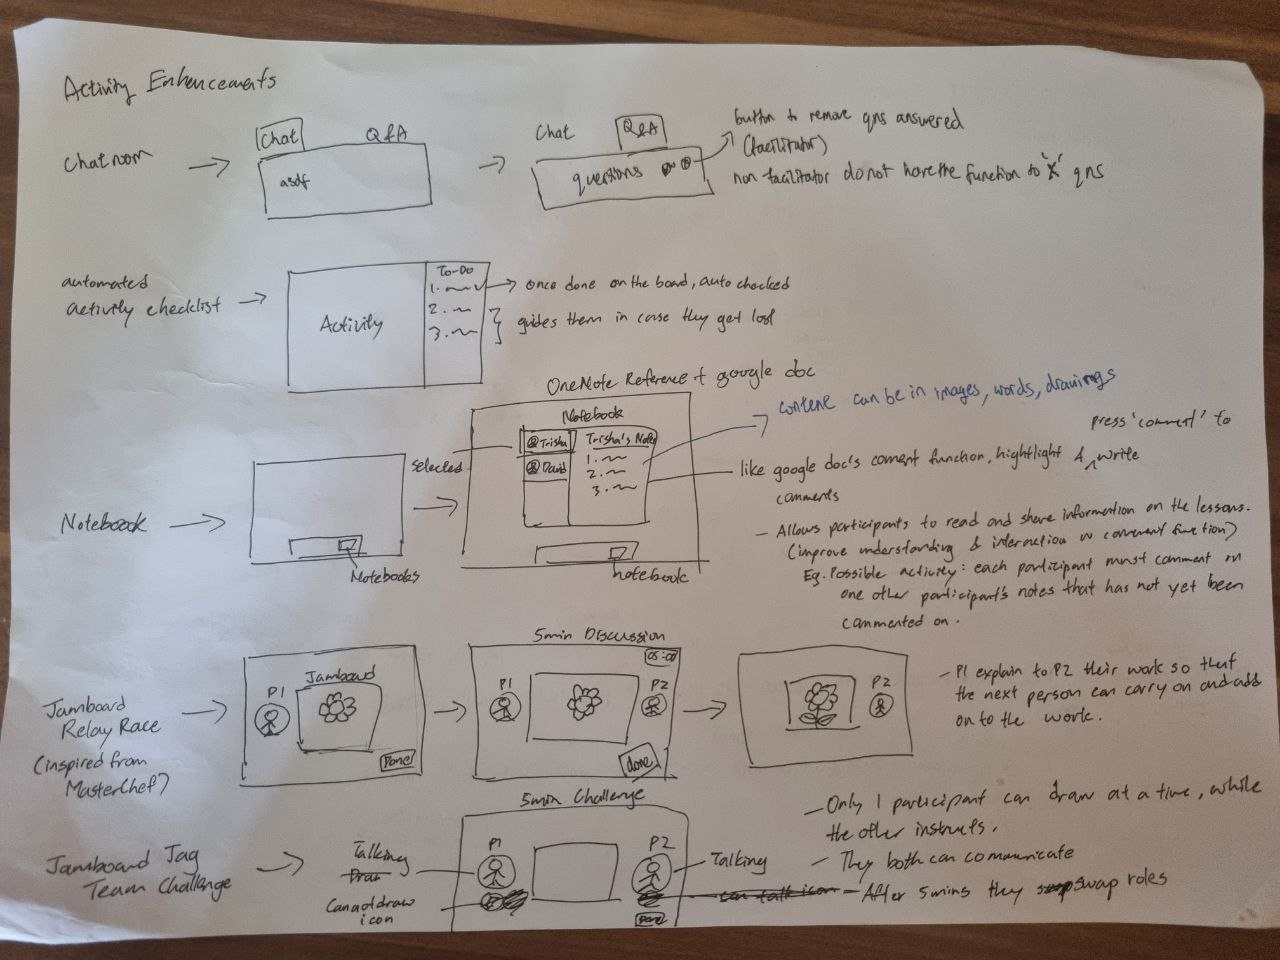 Activity Enhancements
Chatroom
Chat
Q&A
asdf
Chat
Q&A
questions
button to remove qns answered
(facilitator)
non facilitator do not have the function to 'X' qns
automated
activity checklist
Activity
To-Do
1.
2.
3.
once done on the board, auto checked
guides them in case they get lost
Notebook
Notebooks
OneNote Reference + google doc
Notebook
selected
Trisha
David
Trisha's Notes
1.
2.
3.
notebook
content can be in images, words, drawings
press 'comment' to
like google doc's coment function, hightlight & write
comments
- Allows participants to read and share information on the lessons.
(improve understanding & interaction w comment function)
Eg. Possible activity: each participant must comment on
one other participant's notes that has not yet been
commented on.
Jamboard
Relay Race
(inspired from
MasterChef)
P1
Jamboard
Done
5min Discussion
05:00
P1
P2
done
P2
- P1 explain to P2 their work so that
the next person can carry on and add
on to the work.
Jamboard Jag
Team Challenge
Talking
Draw
Cannot draw
icon
5min Challenge
P1
P2
Done
Talking
can talk icon
- Only 1 participant can draw at a time, while
the other instructs.
- They both can comunicate
- After 5mins they swap roles